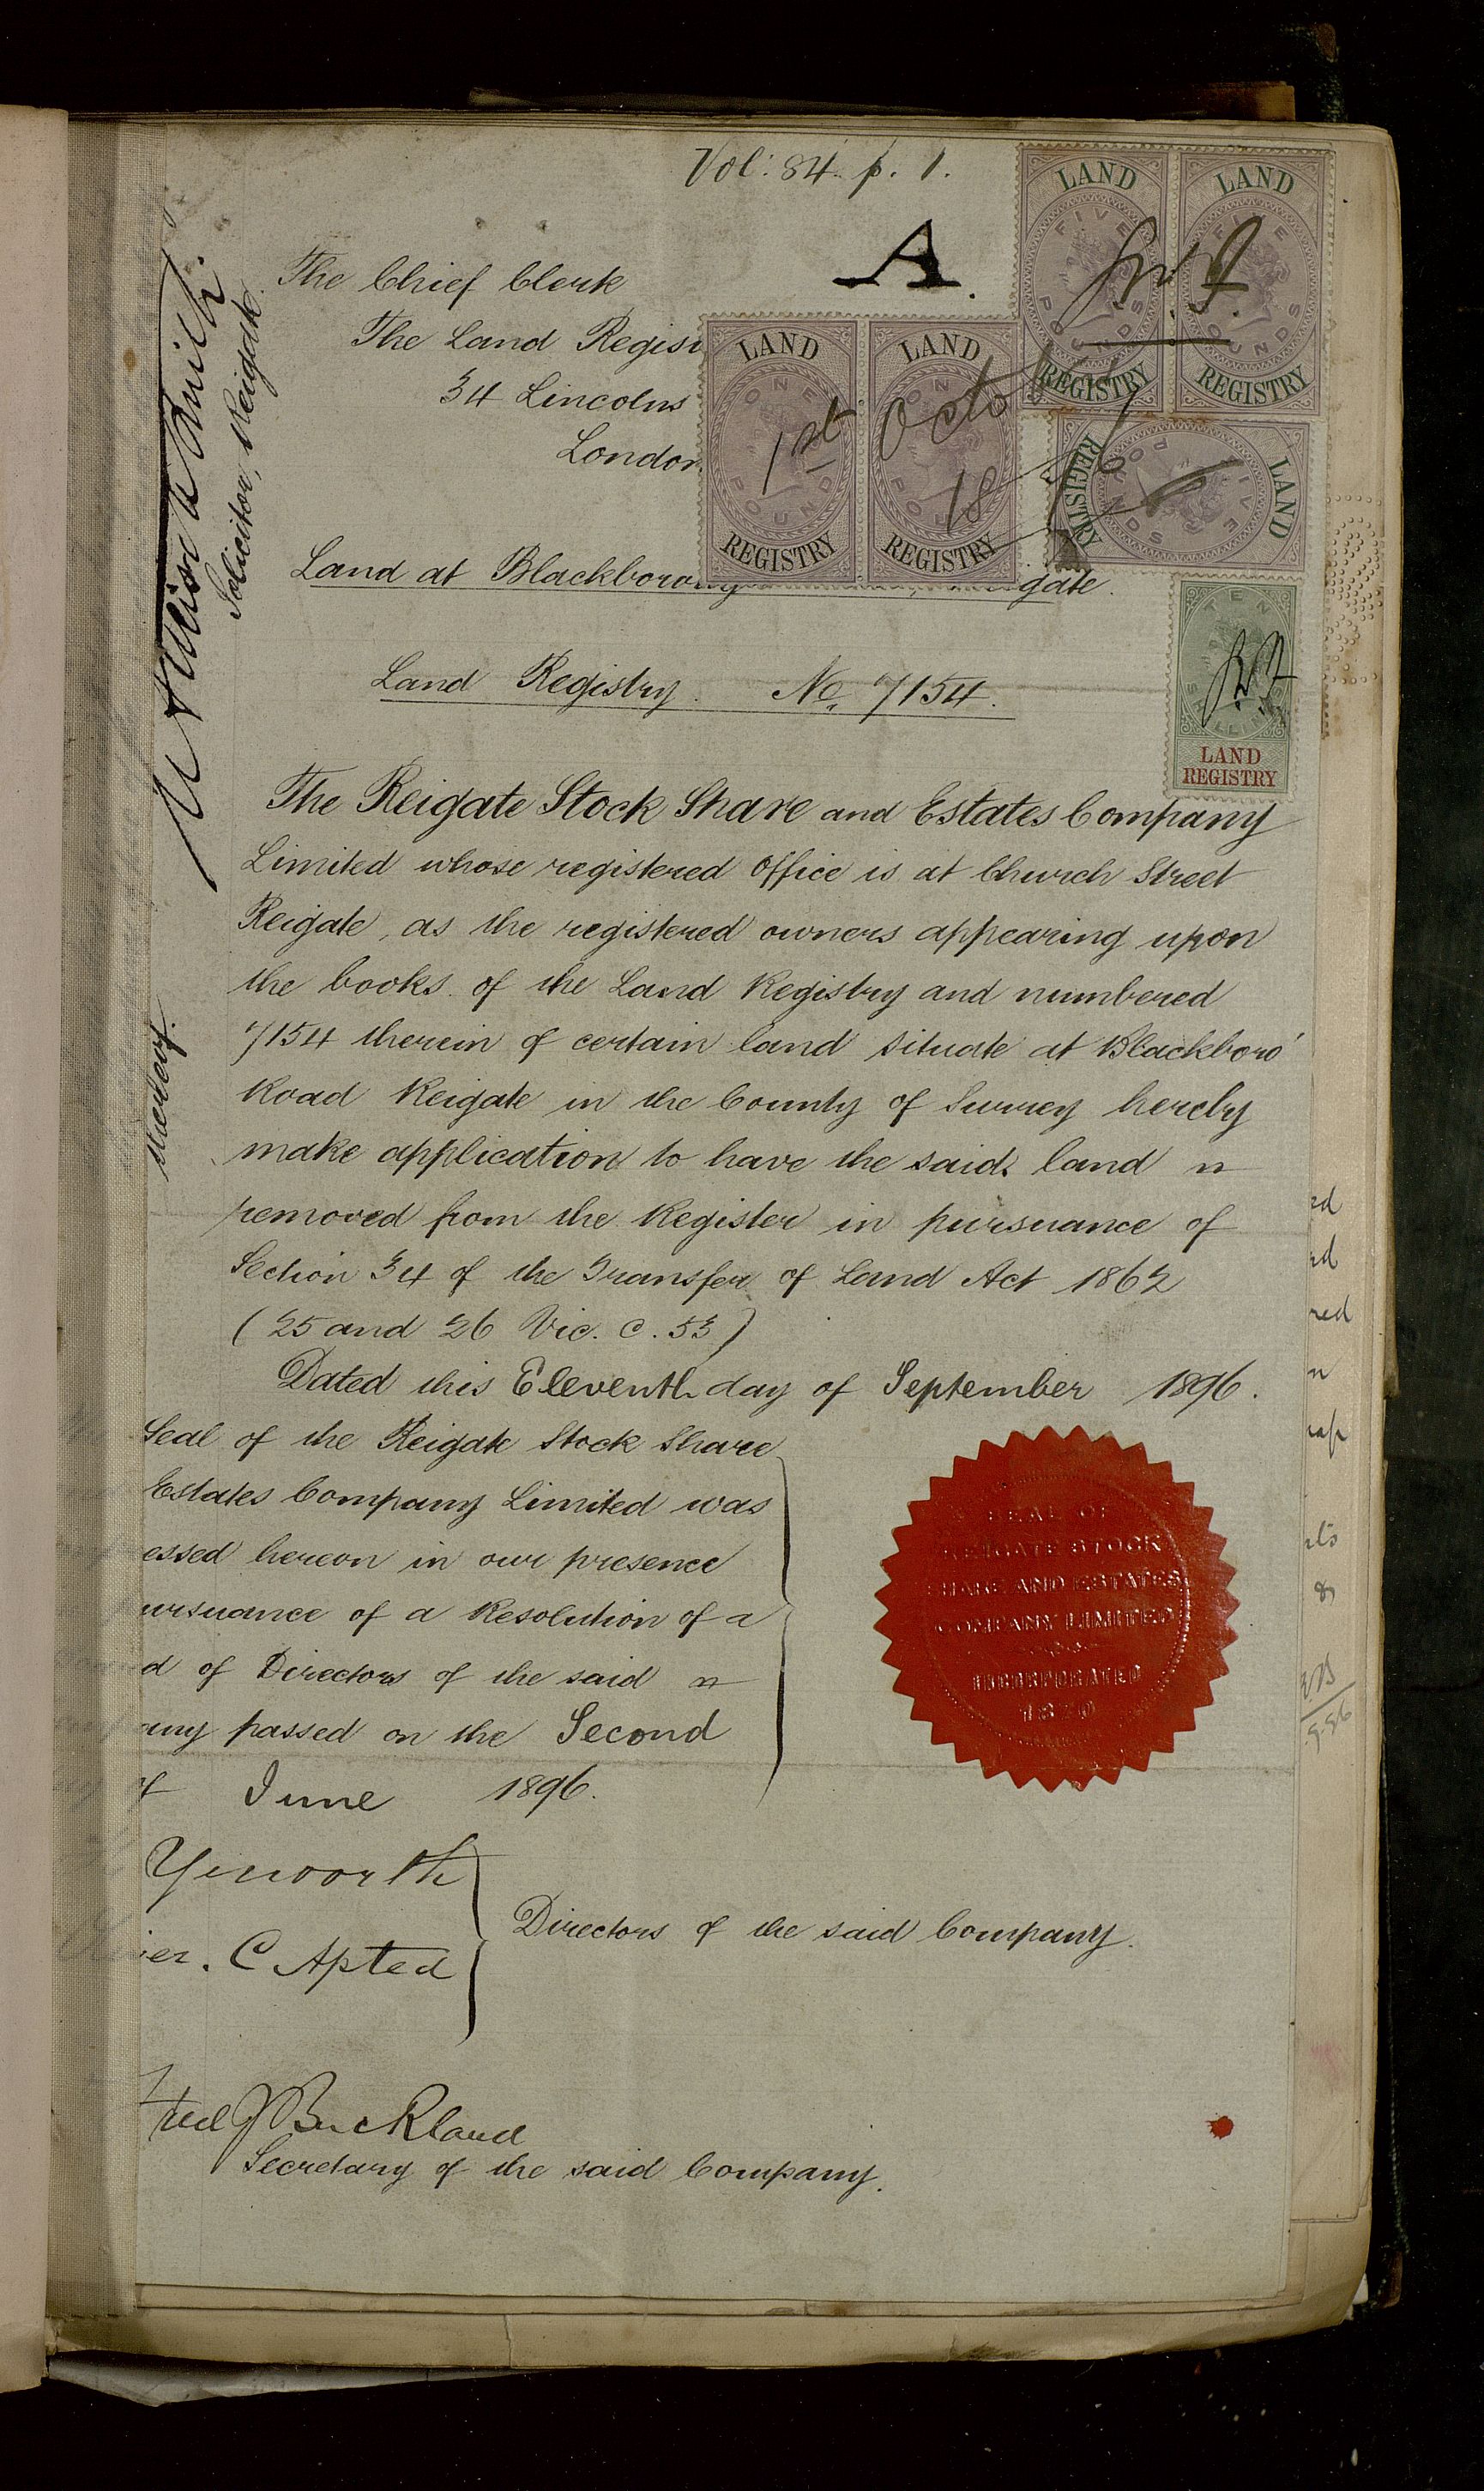 Vol: 84. p. 1.
A.
The Chief Clerk
The Land Regist
34 Lincolns
London
LAND
FIVE
POUNDS
REGISTRY
LAND
FIVE
POUNDS
REGISTRY
LAND
ONE
POUND
REGISTRY
LAND
ONE
POUND
REGISTRY
1st Octo
18
LAND
FIVE
POUNDS
REGISTRY
Land at Blackboroug
gate.
TEN
SHILLINGS
LAND
REGISTRY
Land Registry. No. 7154.
The Reigate Stock Share and Estates Company
Limited whose registered Office is at Church Street
Reigate, as the registered owners appearing upon
the books of the Land Registry and numbered
7154 therein of certain land situate at Blackboro'
Road Reigate in the County of Surrey hereby
make application to have the said land
removed from the Register in pursuance of
Section 34 of the Transfer of Land Act 1862
(25 and 26 Vic. c. 53)
Dated this Eleventh day of September 1896.
Seal of the Reigate Stock Share
Estates Company Limited was
essed hereon in our presence
ursuance of a Resolution of a
d of Directors of the said
any passed on the Second
June 1896.
SEAL OF
REIGATE STOCK
SHARE AND ESTATES
COMPANY LIMITED
INCORPORATED
Directors of the said Company.
er. C Apted
Buckland
Secretary of the said Company.
Solicitor, Reigate.
thereof.